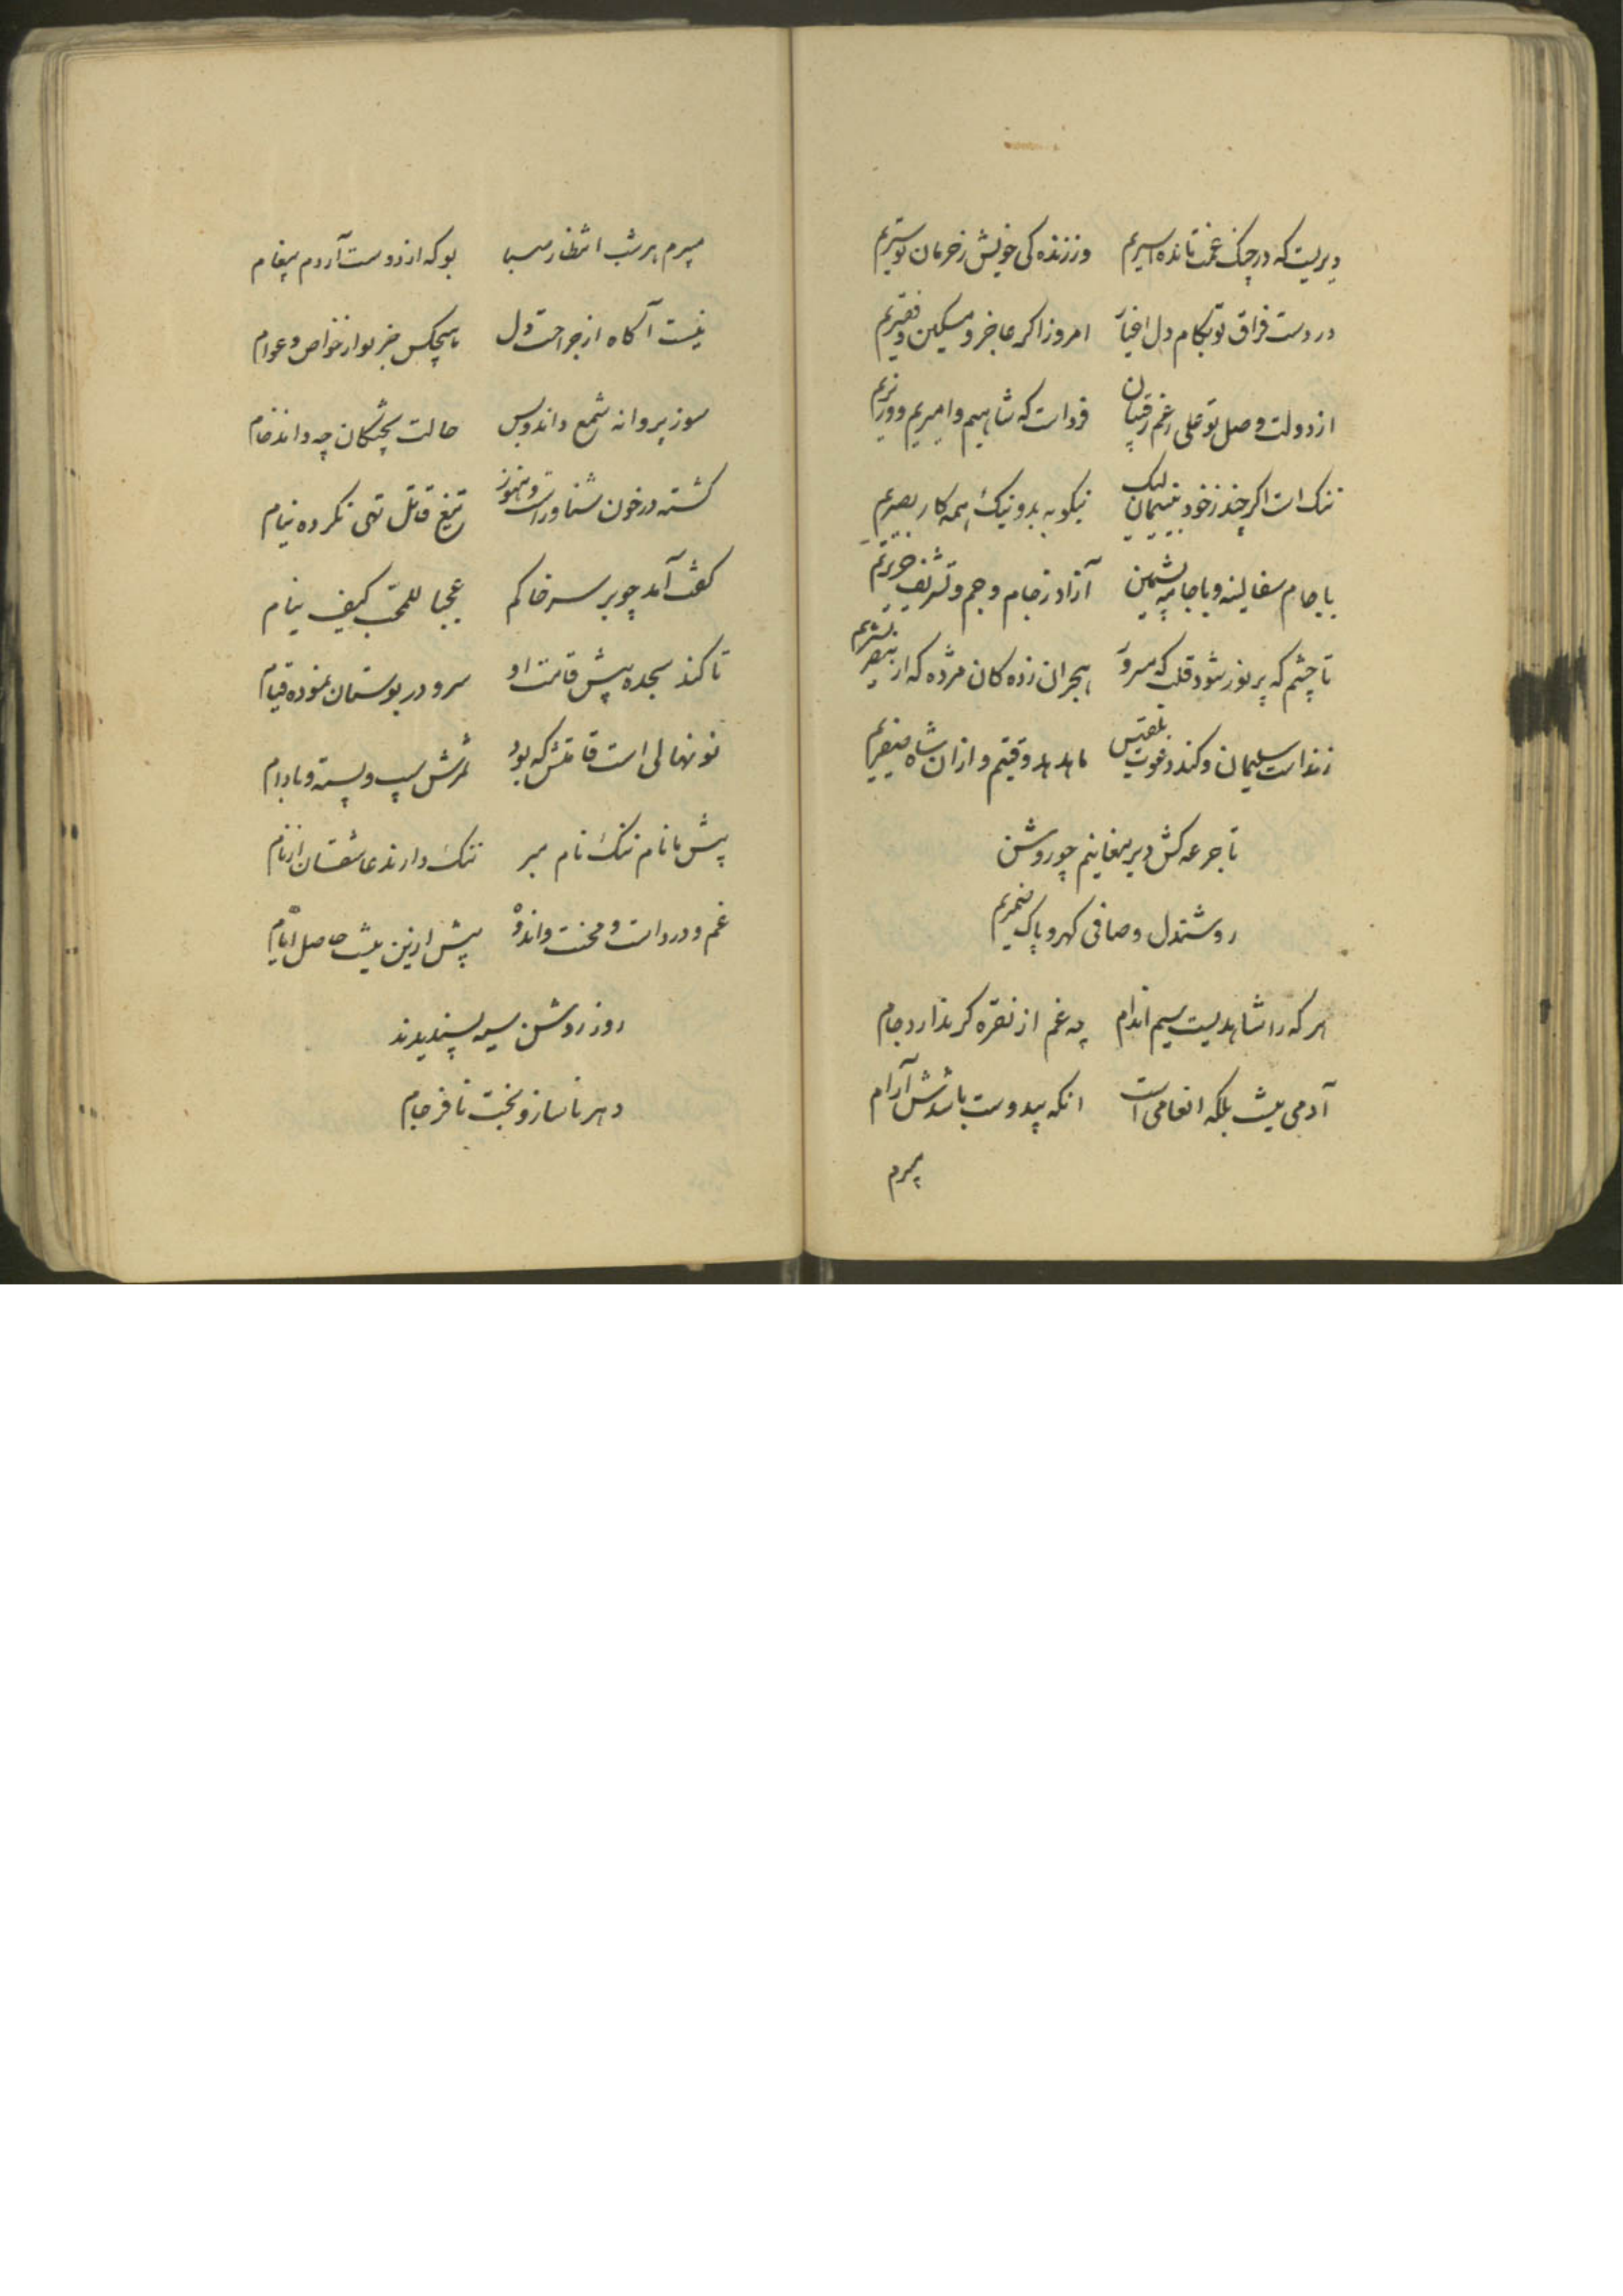 دیریست که در چنک غمت تا نده اسیریم وز زنده کی خویش ز حرمان تو سیریم
در دست فراق تو بکام دل اغیار امروز اکر عاجز و مسکین و فقیریم
از دولت وصل تو علی رغم رقیبان فرداست که شاهیم و امیریم و وزیریم
ننک است اکر چند ز خود بینیمان لیک نیکو به بد و نیک همه کار بصیریم
با جام سفالینه و با جامه پشمین آزاد ز جام و جم و تشریف حریریم
تا چشم که پر نور شود قلب که مسرور هجران زده کان مژده که از بشیریم
زنداست سلیمان و کند دعوت بلقیس ما هدهد وقتیم و ازان شاه سفیریم
تا جرعه کش دیر مغانیم چو روشن
روشندل و صافی کهر و پاک ضمیریم
هر که را شاهدیست سیم اندام چه غم از نقره کر ندارد جام
آدمی نیست بلکه انعامی است انکه بیدوست باشدش آرام
میرم
میرم هر شب انتظار صبا بو که از دوست آردم پیغام
نیست آکاه از جراحت دل هیچکس جز تو از خواص و عوام
سوز پروانه شمع داند و بس حالت پختکان چه داند خام
کشته در خون شناور است و هنوز تیغ قاتل تهی نکرده نیام
کفت آمد چو بر سر خاکم عجبا للمحب کیف ینام
تا کند سجده پیش قامت او سرو در بوستان نموده قیام
نو نهالی است قامتش که بود ثمرش سیب و پسته و بادام
پیش ما نام ننک نام مبر ننک دارند عاشقان از نام
غم و درد است و محنت و اندوه بیش ازین نیست حاصل ایام
روز روشن سیه پسندیدند
دهر ناساز و بخت نافرجام